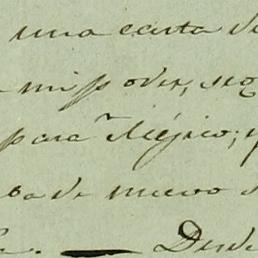 una carta de
mi poder, seg
para Méjico; y
de nuevo
Desde